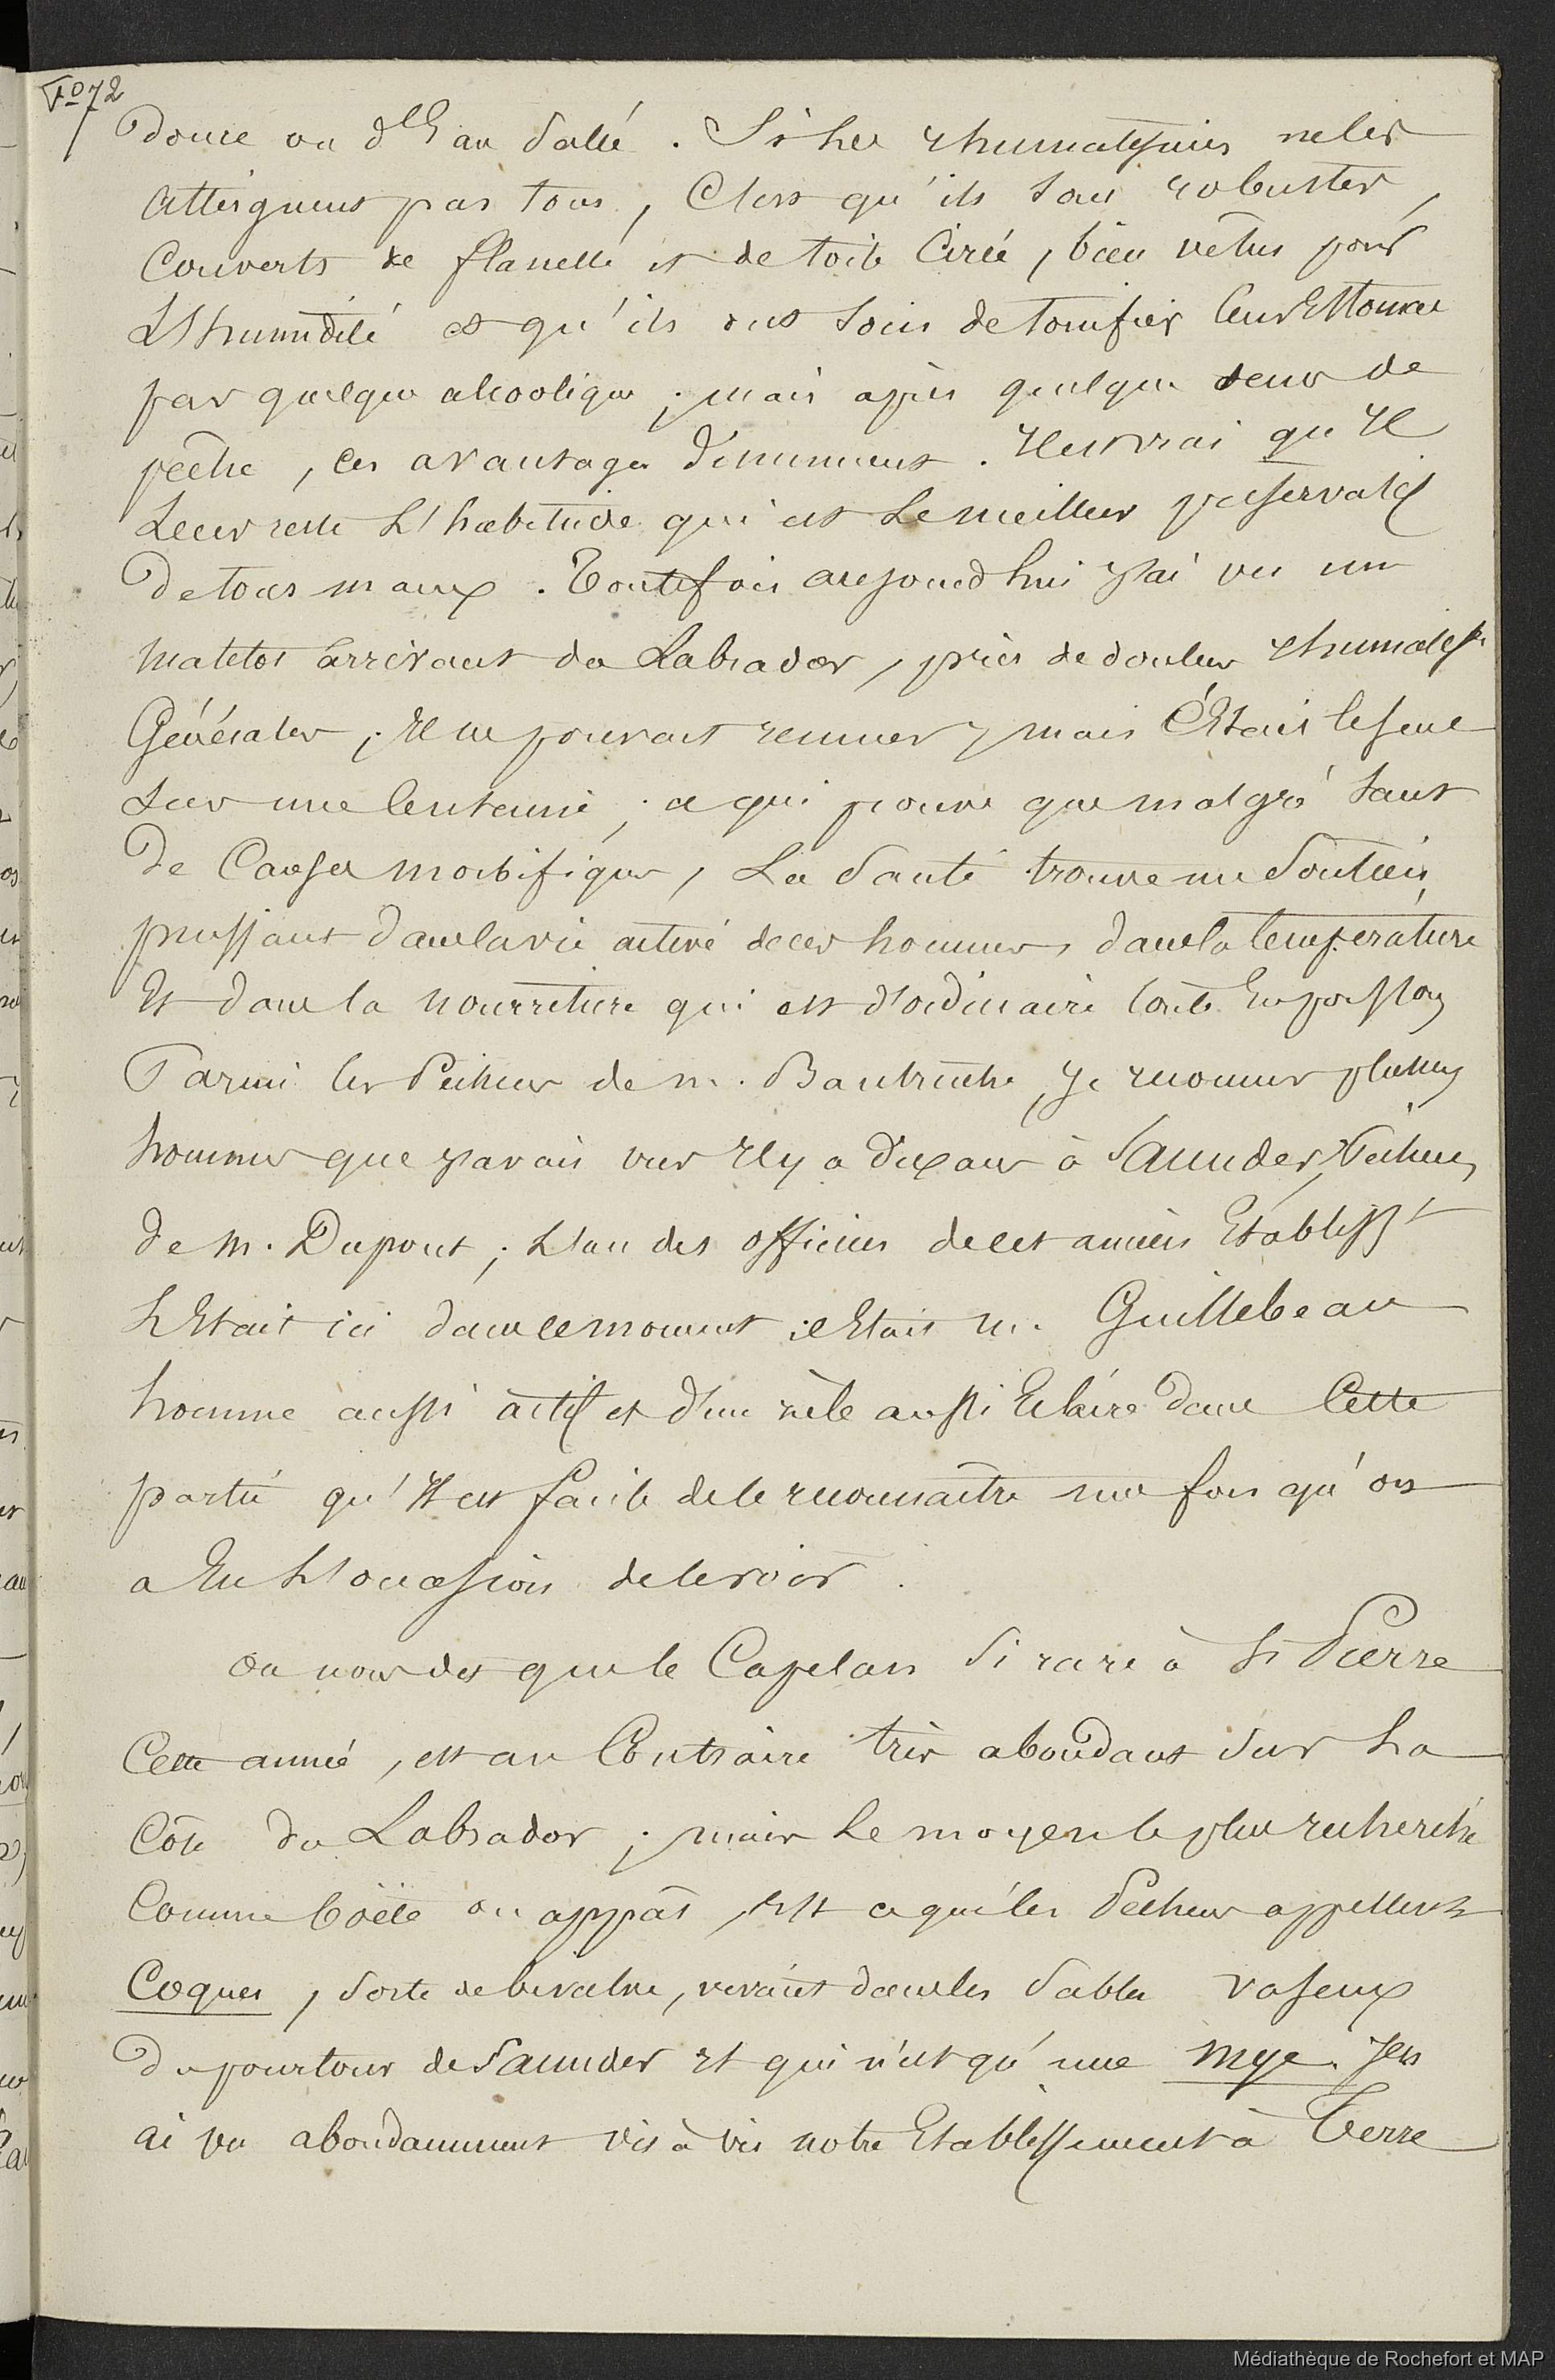 F° 72
douce ou d'Eau salée. Si les rhumatismes ne les
atteignent pas tous, C'est qu'ils sont robustes,
Couverts de flanelle et de toile Cirée, bien vêtus pour
L'humidité et qu'ils ont soin de tonifier leur Estomac
par quelques alcooliques ; mais après quelques de
pêche, ces avantages diminuent. Il est vrai qu'Il
Leur reste L'habitude qui est Le meilleur préservatif
de tous maux. Toutefois aujourd'hui J'ai vu un
matelot arrivant du Labrador, pris de douleurs rhumatism
Générales ; Il ne pouvait remuer, mais C'Etait le seul
sur une Centaine ; ce qui prouve que malgré tant
de Causes morbifiques, La Santé trouve un Soutien
puissant dans la vie active de ces hommes, dans la température
Et dans la nourriture qui est d'ordinaire toute En poisson
Parmi les Pêcheurs de m. Bautruche, Je reconnus plusieurs
hommes que J'avais vus Il y a dix ans à Saunders, Pêcheurs
de m. Dupont ; L'un des officiers de cet ancien Etablisst
Etait ici dans ce moment ; c'Etait m. Guillebeau
homme aussi actif et d'un zèle aussi Eclairé dans Cette
partie qu'Il est facile de le reconnaître une fois qu'on
a Eu L'occasion de le voir.
On nous dit que le Capelan Si rare à St Pierre
Cette année, est au Contraire très abondant Sur La
Côte du Labrador ; mais Le moyen le plus recherché
Comme boëte ou appât, Est ce que les Pêcheurs appellent
Coques, Sorte de bivalve, vivant dans les Sables vaseux
du pourtour de Saunders Et qui n'est qu'une mye. J'en
ai vu abondamment vis à vis notre Etablissement à Terre